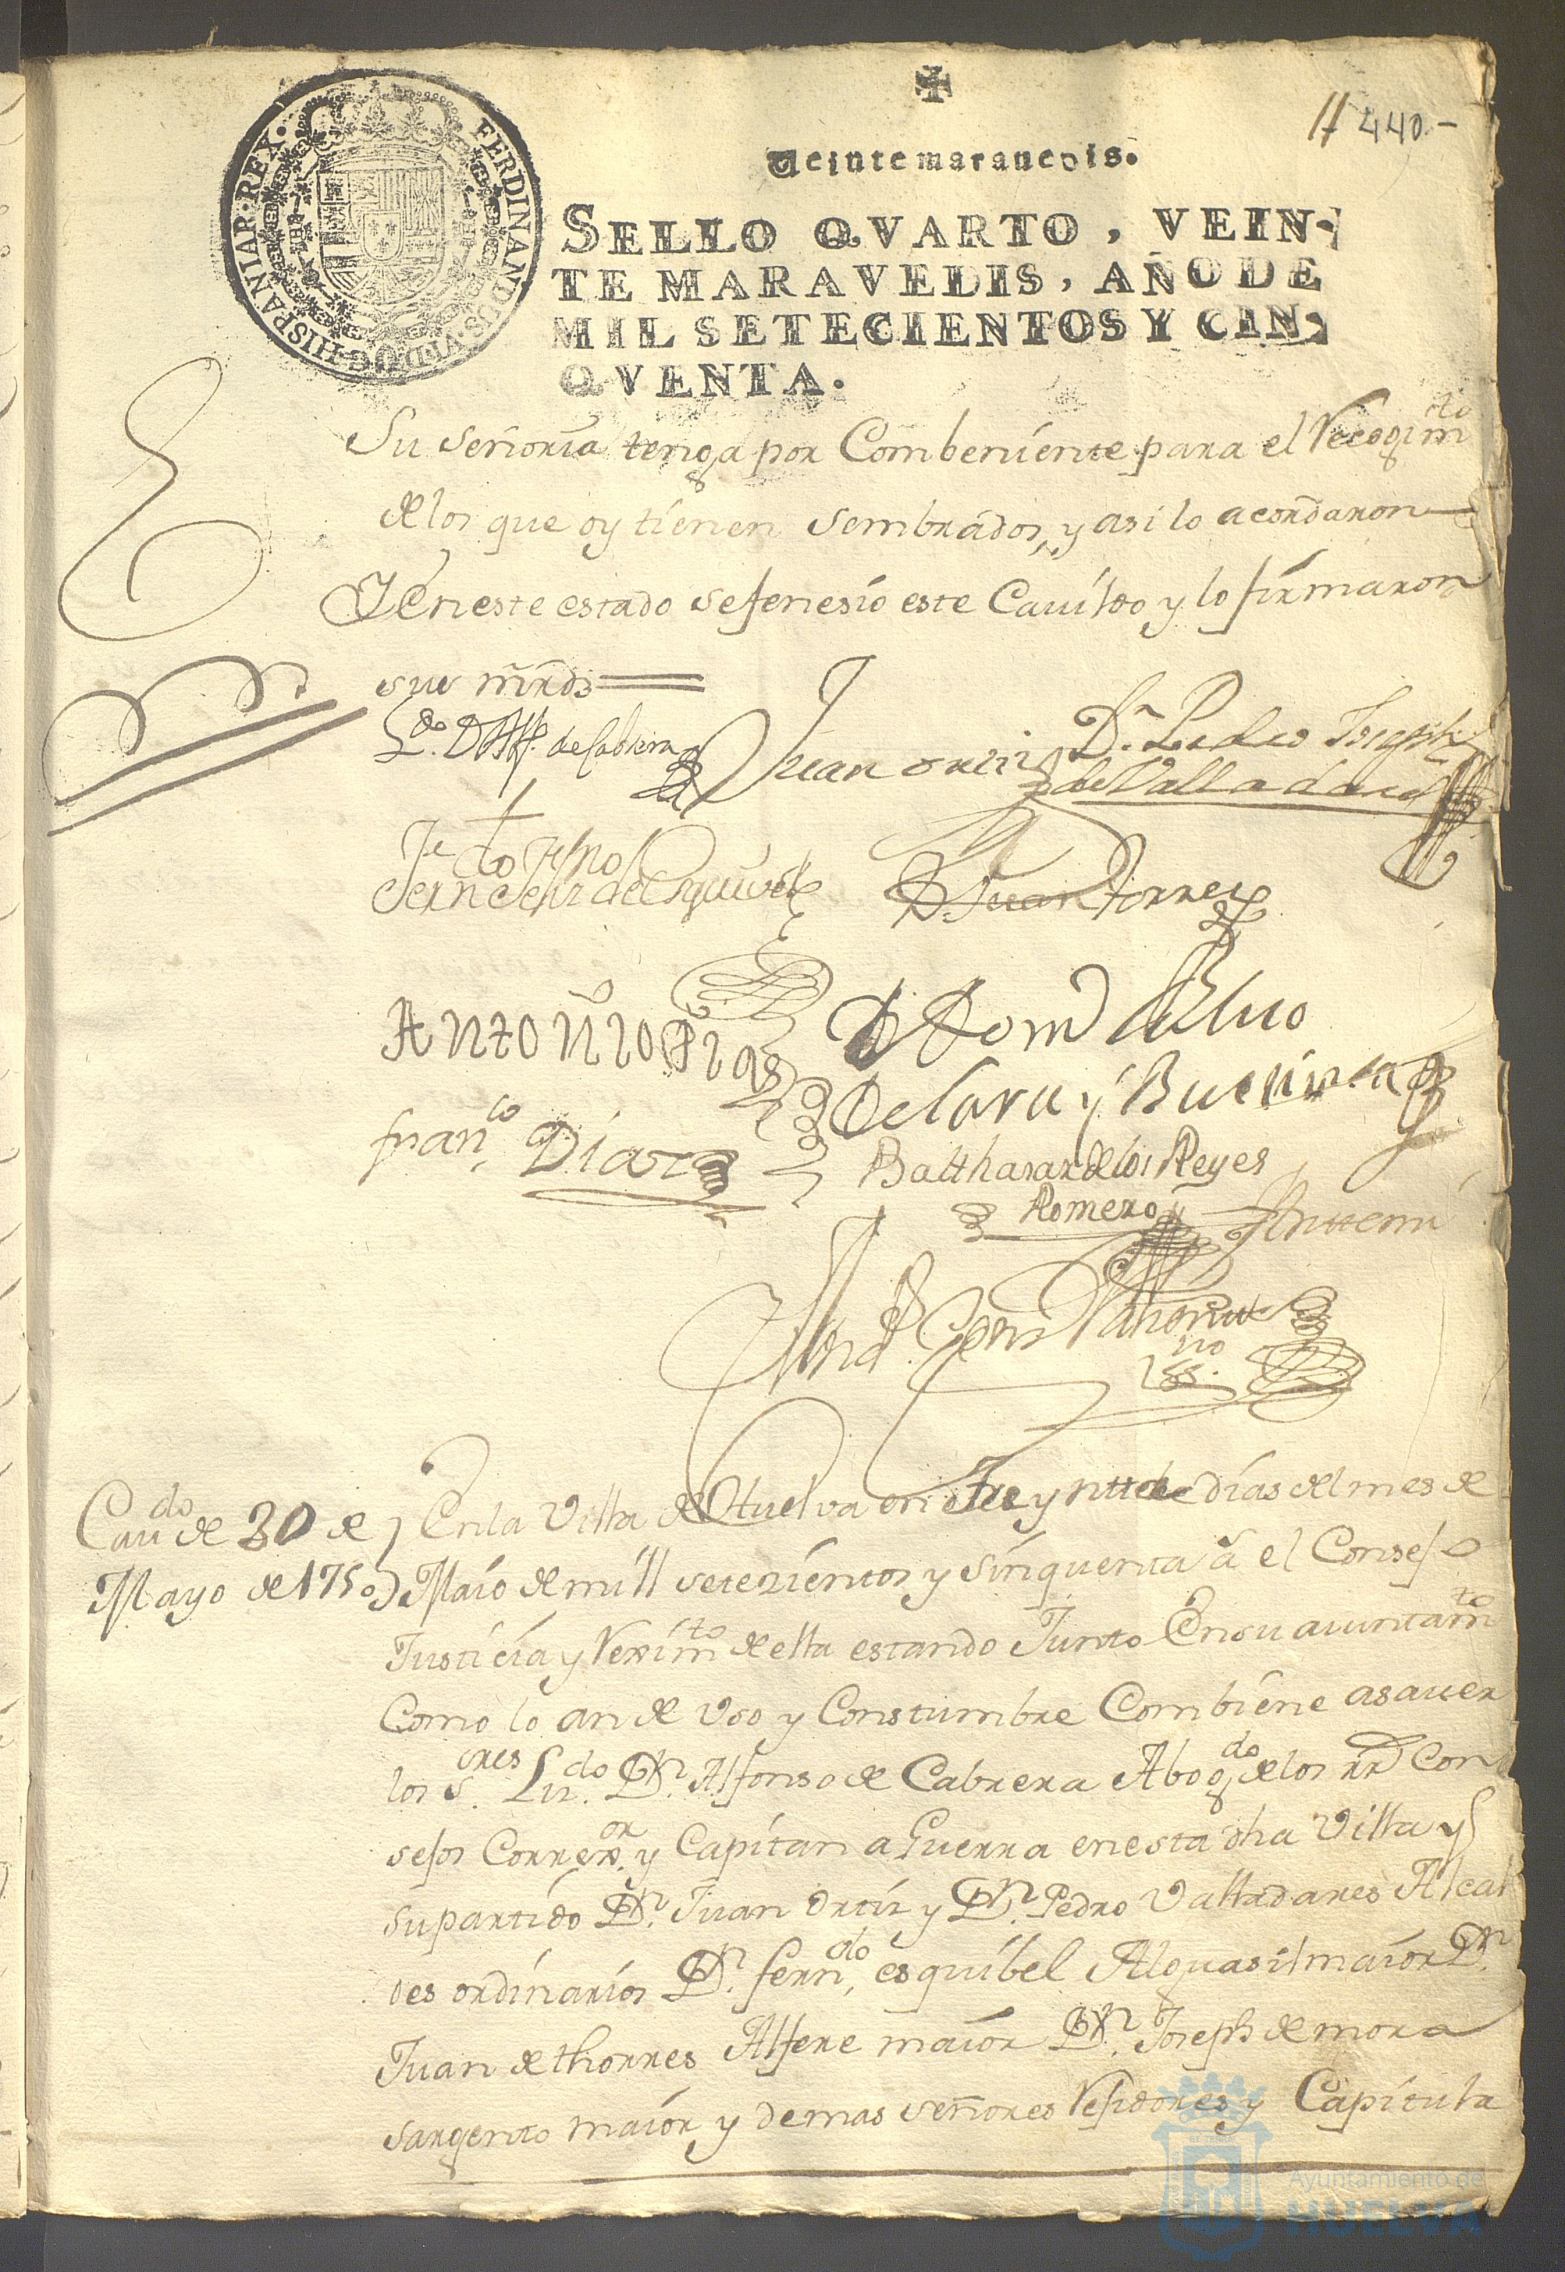 FERDINANDUS. VI. D. G. HISPANIAR. REX.
440
Veinte maravedis.
SELLO QVARTO, VEIN-
TE MARAVEDIS, AÑO DE
MIL SETECIENTOS Y CIN-
QVENTA.
Su señoria tenga por Combeniente para el Recogimto
de los que oy tienen sembrados, y asi lo acordaron
Y en este estado se fenesio este Cavildo y lo firmaron
sus mrds
Ldo Dn Alfo. de Cabrera
Juan ortiz
Dn. Pedro
de Valladares
Fern de Esquivel
Dn Juan Torres
Antonio
de Lara y
franco. Diaz
Balthasar de los Reyes
Romero
Ante mi
Cavdo de 30 de
Mayo de 1750
En la Villa de Huelva en treynta dias del mes de
Maio de mill setezientos y sinquenta a el Consejo
Justicia y Reximto de ella estando Junto En su aiuntamto
Como lo an de Uso y Constumbre Combiene asaver
los Sres. Lizdo. Dn. Alfonso de Cabrera Abogdo de los RRs Con
sejos Correxor. y Capitan a Guerra en esta dha Villa y
su partido Dn. Juan Ortiz y Dn. Pedro Valladares Alcal
des ordinarios Dn. ferndo. esquibel Alguasil maior Dn.
Juan de thorres Alfere maior Dn. Joseph de mora
sargento maior y demas señores Rejidores y Capitula
Ayuntamiento de
HUELVA